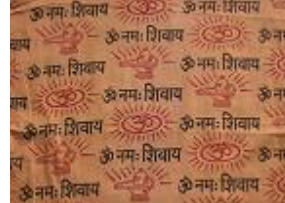 ॐ नमः शिवाय ॐ नमः शिवाय
ॐ नमः शिवाय ॐ नमः
ॐ नमः शिवाय ॐ नमः शिवाय
ॐ नमः शिवाय ॐ नमः
ॐ नमः शिवाय ॐ नमः शिवाय
ॐ नमः शिवाय ॐ नमः
ॐ नमः शिवाय ॐ नमः शिवाय